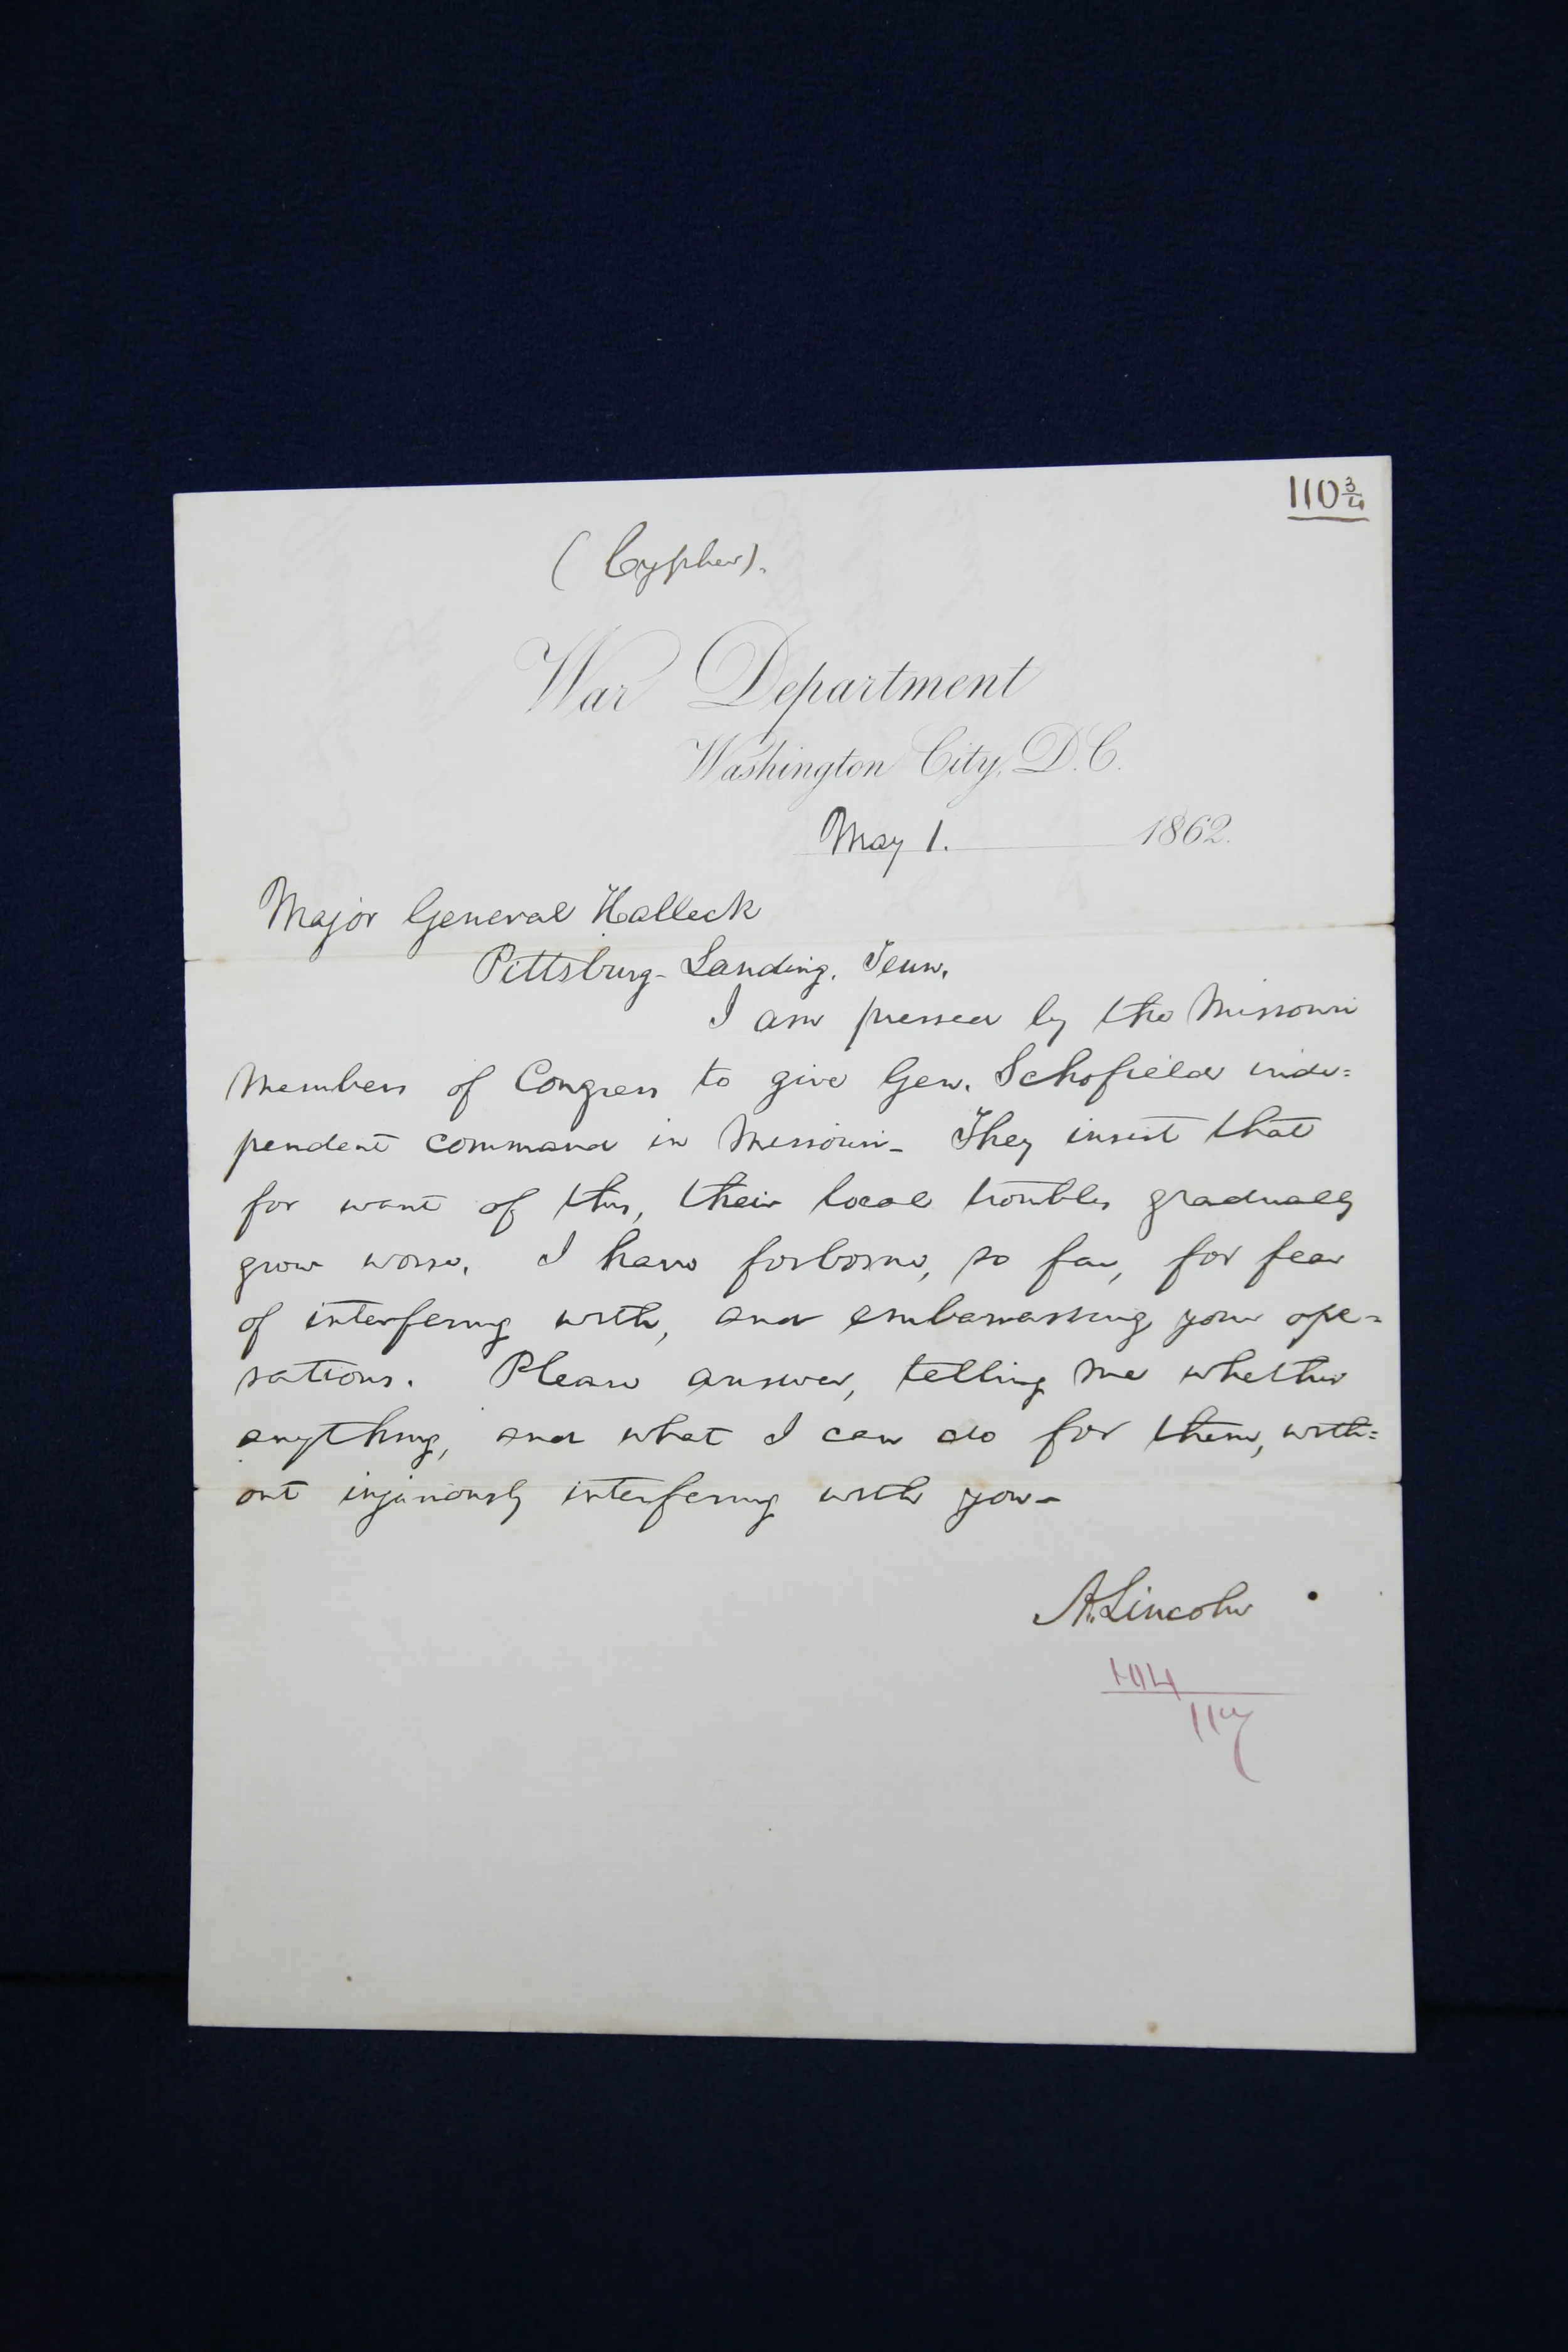 110 3/4
(Cypher).
War Department
Washington City, D.C.
May 1. 1862.
Major General Halleck
Pittsburg-Landing, Tenn.
I am pressed by the Missouri
Members of Congress to give Gen. Schofield inde=
pendent command in Missouri- They insist that
for want of this, their local troubles gradually
grow worse. I have forborne, so far, for fear
of interfering with, and embarrassing your ope=
rations. Please answer, telling me whether
anything, and what I can do for them, with=
out injuriously interfering with you-
A. Lincoln
104